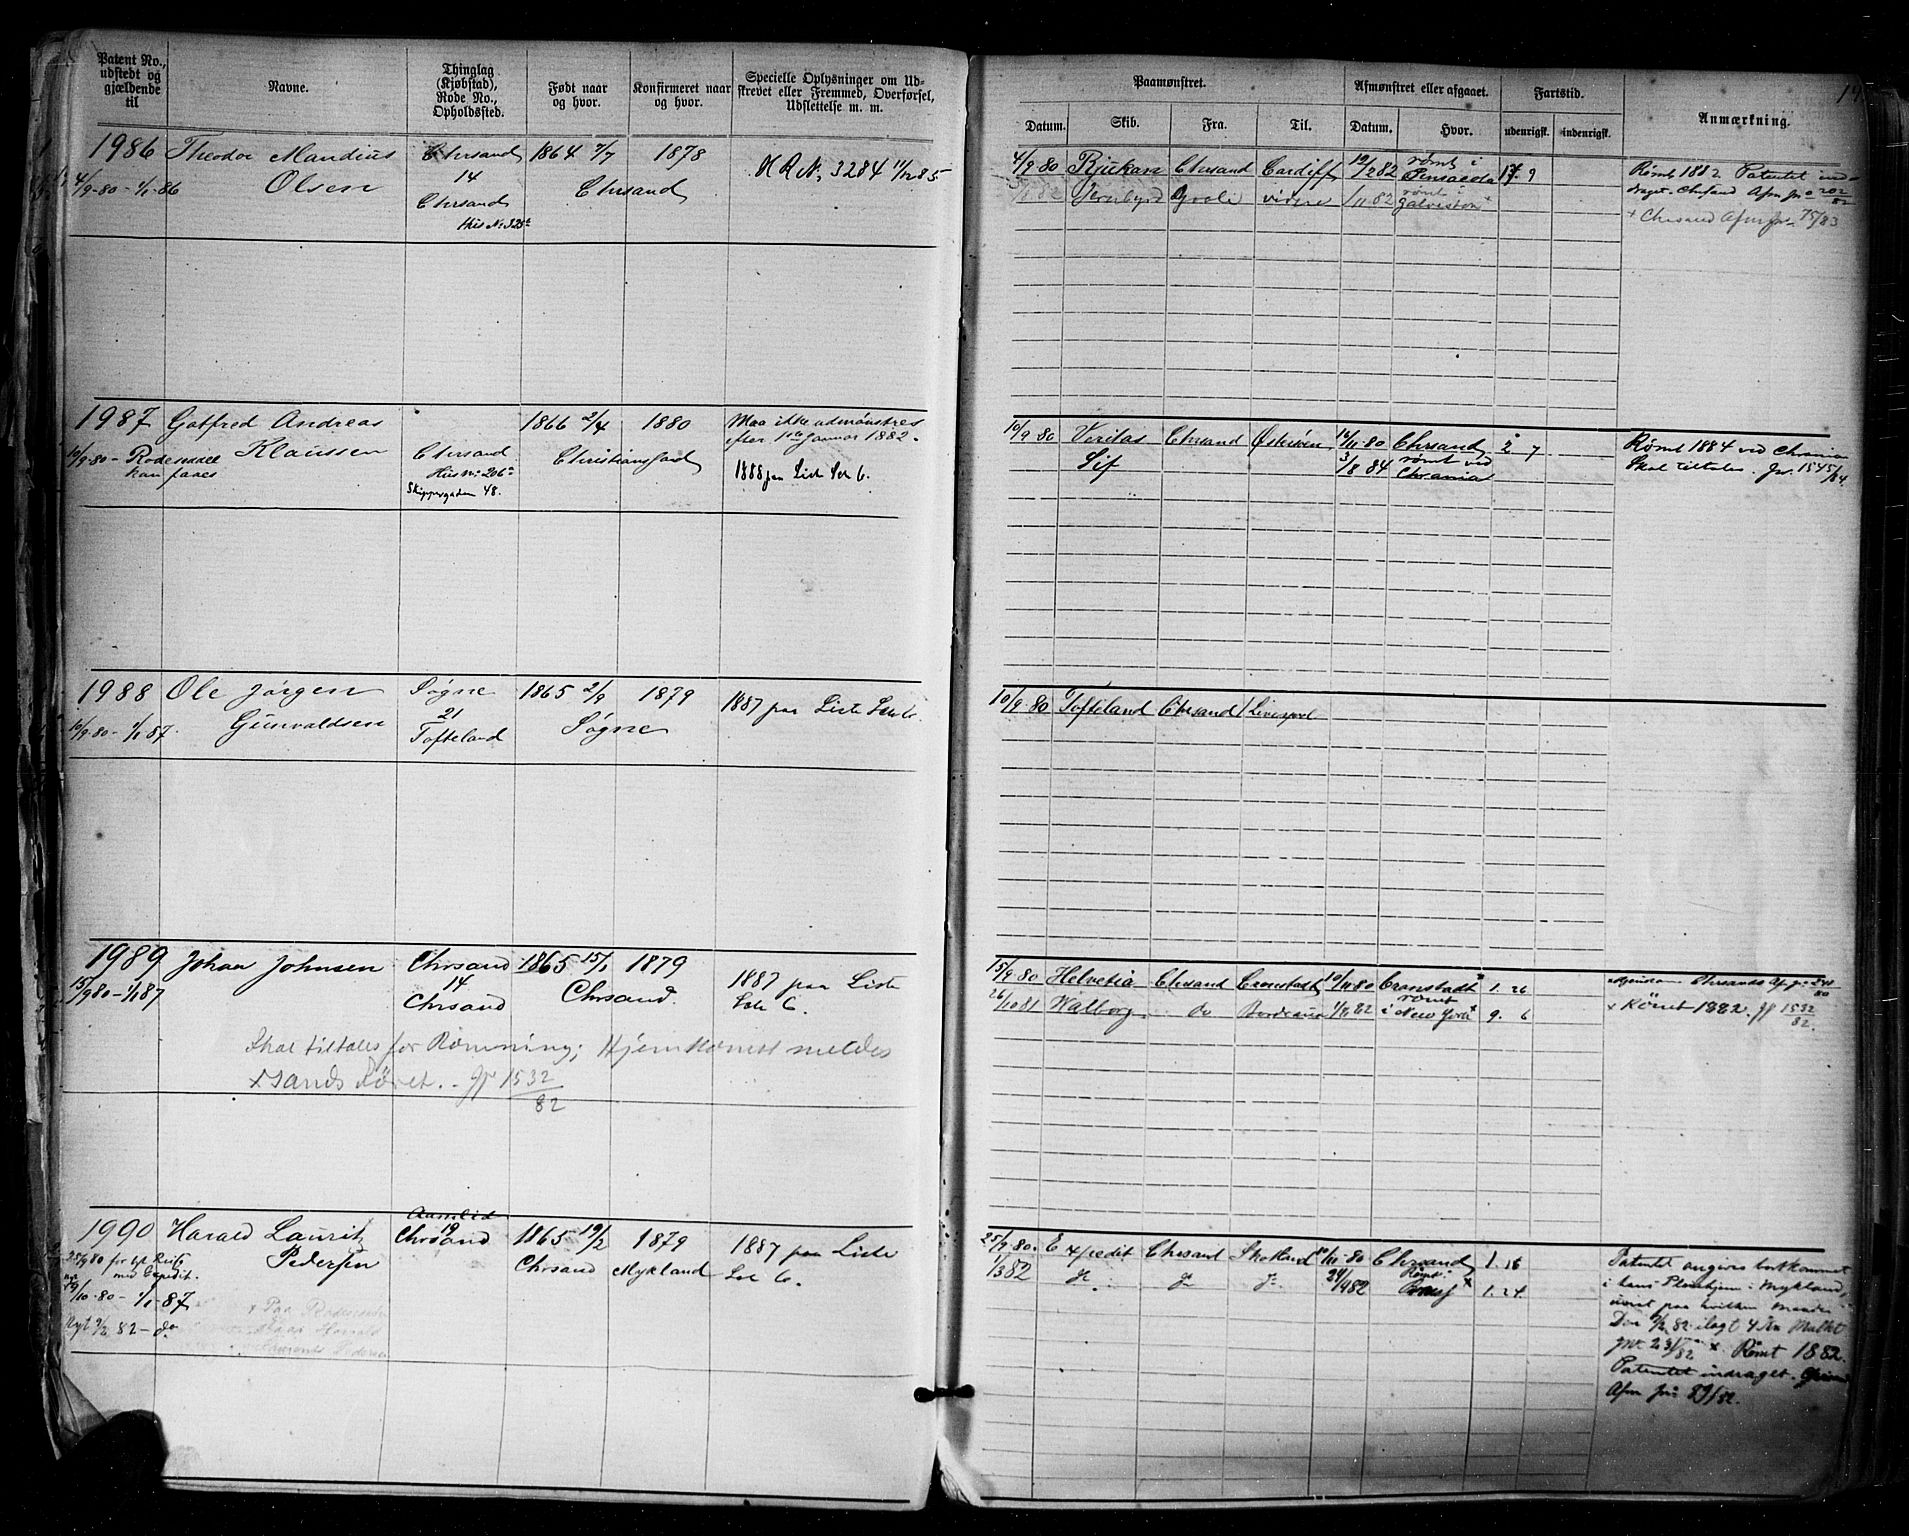 Patent No., udstedt og gjældende til
Navne.
Thinglag (Kjøbstad), Rode No., Opholdssted.
Født naar og hvor.
Konfirmeret naar og hvor.
Specielle Oplysninger om Udskrevet eller Fremmed, Overførsel, Udslettelse m. m.
Paamønstret.
Afmønstret eller afgaaet.
Fartstid.
Anmærkning.
Datum.
Skib.
Fra.
Til.
Datum.
Hvor.
udenrigsk.
indenrigsk.
1986 Theodor Mandius Chrsand 1864 7/7 1878
4/9-80 - 1/1-86 Olsen 14 Chrsand
Chrsand
Hus No 325
H R No 3284 11/12 85
4/9 80 Rjukan Chrsand Cardiff 19/2 82 rømt i Pensacola 17. 9
videre /11 82 rømt i Galveston +
Rømt 1882 Patentet inddraget. Chrsand Afm Jr 202/82
+ Chrsand Afm Jr 75/83
1987 Gotfred Andreas 1866 2/4 1880
10/9-80 - Klaussen Chrsand Christiansand
Hus No 206
Skippergaden 48.
Maa ikke udmønstres
efter 1ste Januar 1882.
1888 paa Liste Lit 6.
10/9 80 Veritas Chrsand Østersøen 16/11-80 Chrsand 2 7
Sif 3/8 84 rømt ved Chrania
Rømt 1884 ved Chrania
Skal tiltales. Jr. 1545/84
1988 Ole Jørgen Søgne 1865 2/9 1879
10/9-80 - 1/1 87. Gunvaldsen 21 Søgne
Tofteland
1887 paa Liste Lit 6.
10/9-80 Tofteland Chrsand Liverpool
1989 Johan Johnsen Chrsand 1865 15/1 1879
15/9 80 - 1/1 87 14 Chrsand.
Chrsand
1887 paa Liste
Lit 6.
Skal tiltales for Rømning; Hjemkomst meldes
Xsands Politiret. - Jr 1532/82
15/9-80 Helvetia Chrsand Cronstadt 10/11-80 Cronstadt 1. 26
26/10 81 Walborg do Bordeaux 1/11 82 rømt i New York + 9. 6
+ Rømt 1882. Jr 1532/82.
1990 Harald Lauritz Aamlid 1865 19/2 1879
Pedersen 19 Chrsand Mykland
Chrsand
25/9 80 for
med Expedit.
/10-80 - 1/1-87
Nyt 9/2 82 - do
1887 paa Liste
Lit 6.
25/9-80. Expedit Chrsand Skotland /11-80 Chrsand 1. 16
1/3 82 do do do 24/4 82 Rømt + 1. 24.
Patentet angives bortkommet
i hans Pleiehjem i Mykland,
uvist paa hvilken Maade
Den 9/2 82 ilagt 4 Kr Mulkt
Jr 23/82 + Rømt 1882.
Patentet inddraget.
Afm Jr 89/82.